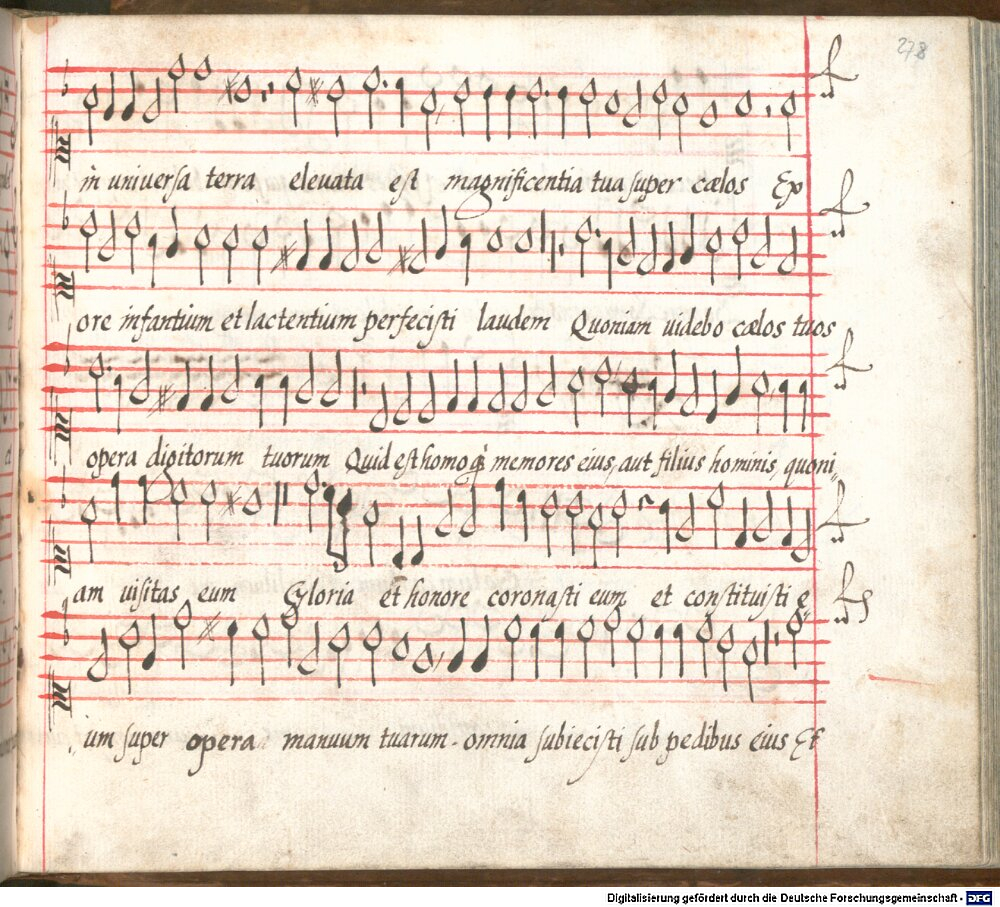 278
in uniuersa terra eleuata est magnificentia tua super cælos Ex
ore infantium et lactentium perfecisti laudem Quoniam uidebo cælos tuos
opera digitorum tuorum Quid est homo memores eius, aut filius hominis, quoni
am uisitas eum Gloria et honore coronasti eum et constituisti e
um super opera manuum tuarum. omnia subiecisti sub pedibus eius Et
Digitalisierung gefördert durch die Deutsche Forschungsgemeinschaft - DFG